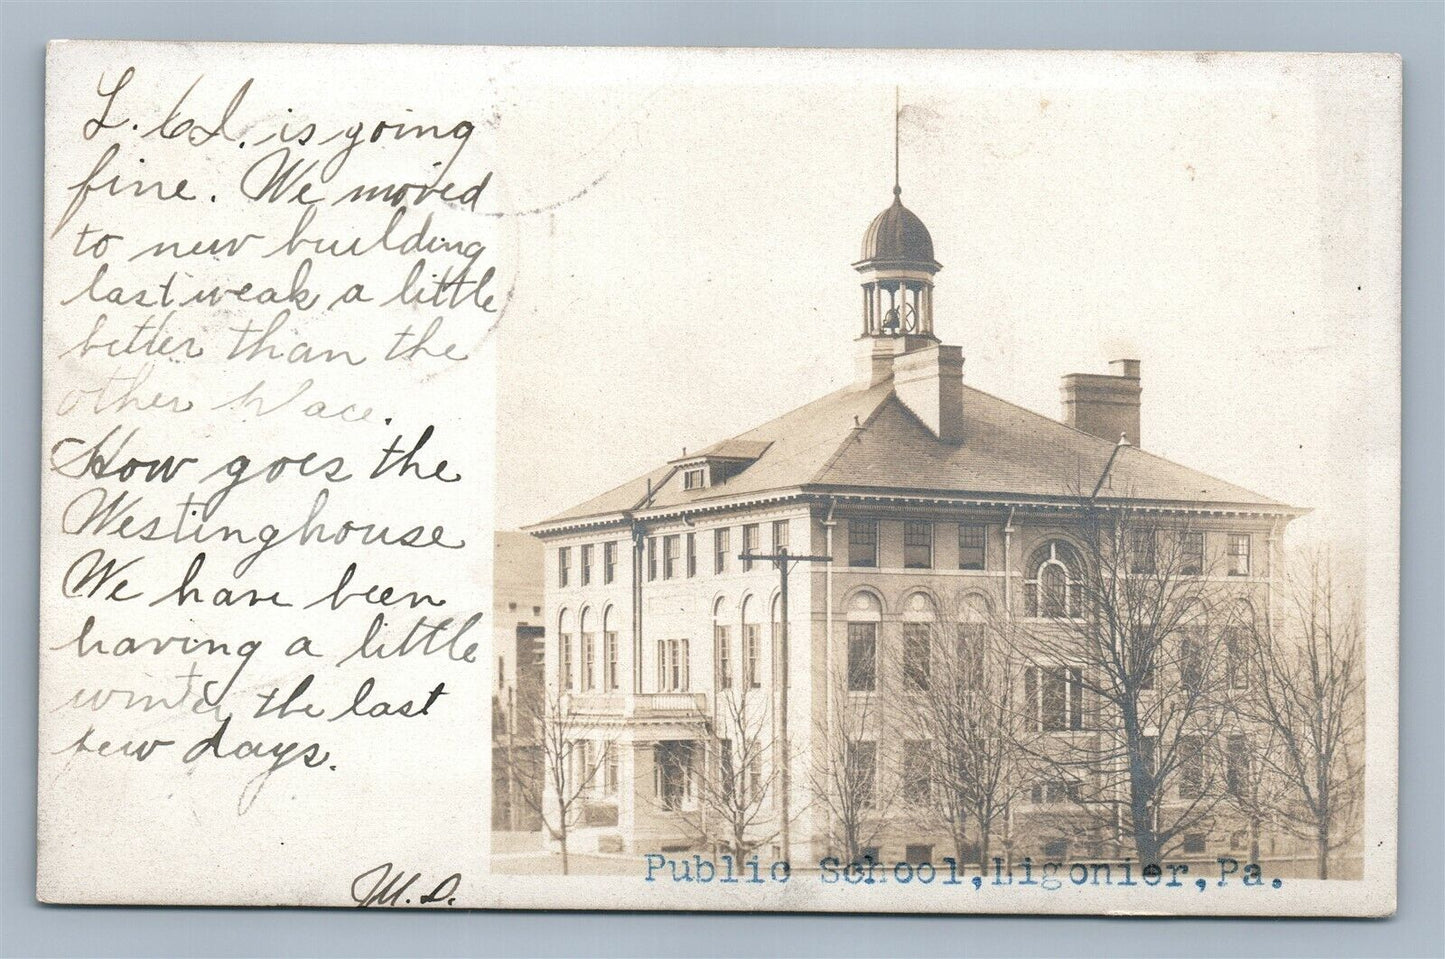 is going
fine. We moved
to new building
last weak a little
better than the
other place.
How goes the
Westinghouse
We have been
having a little
winter the last
few days.
Public School, Ligonier, Pa.